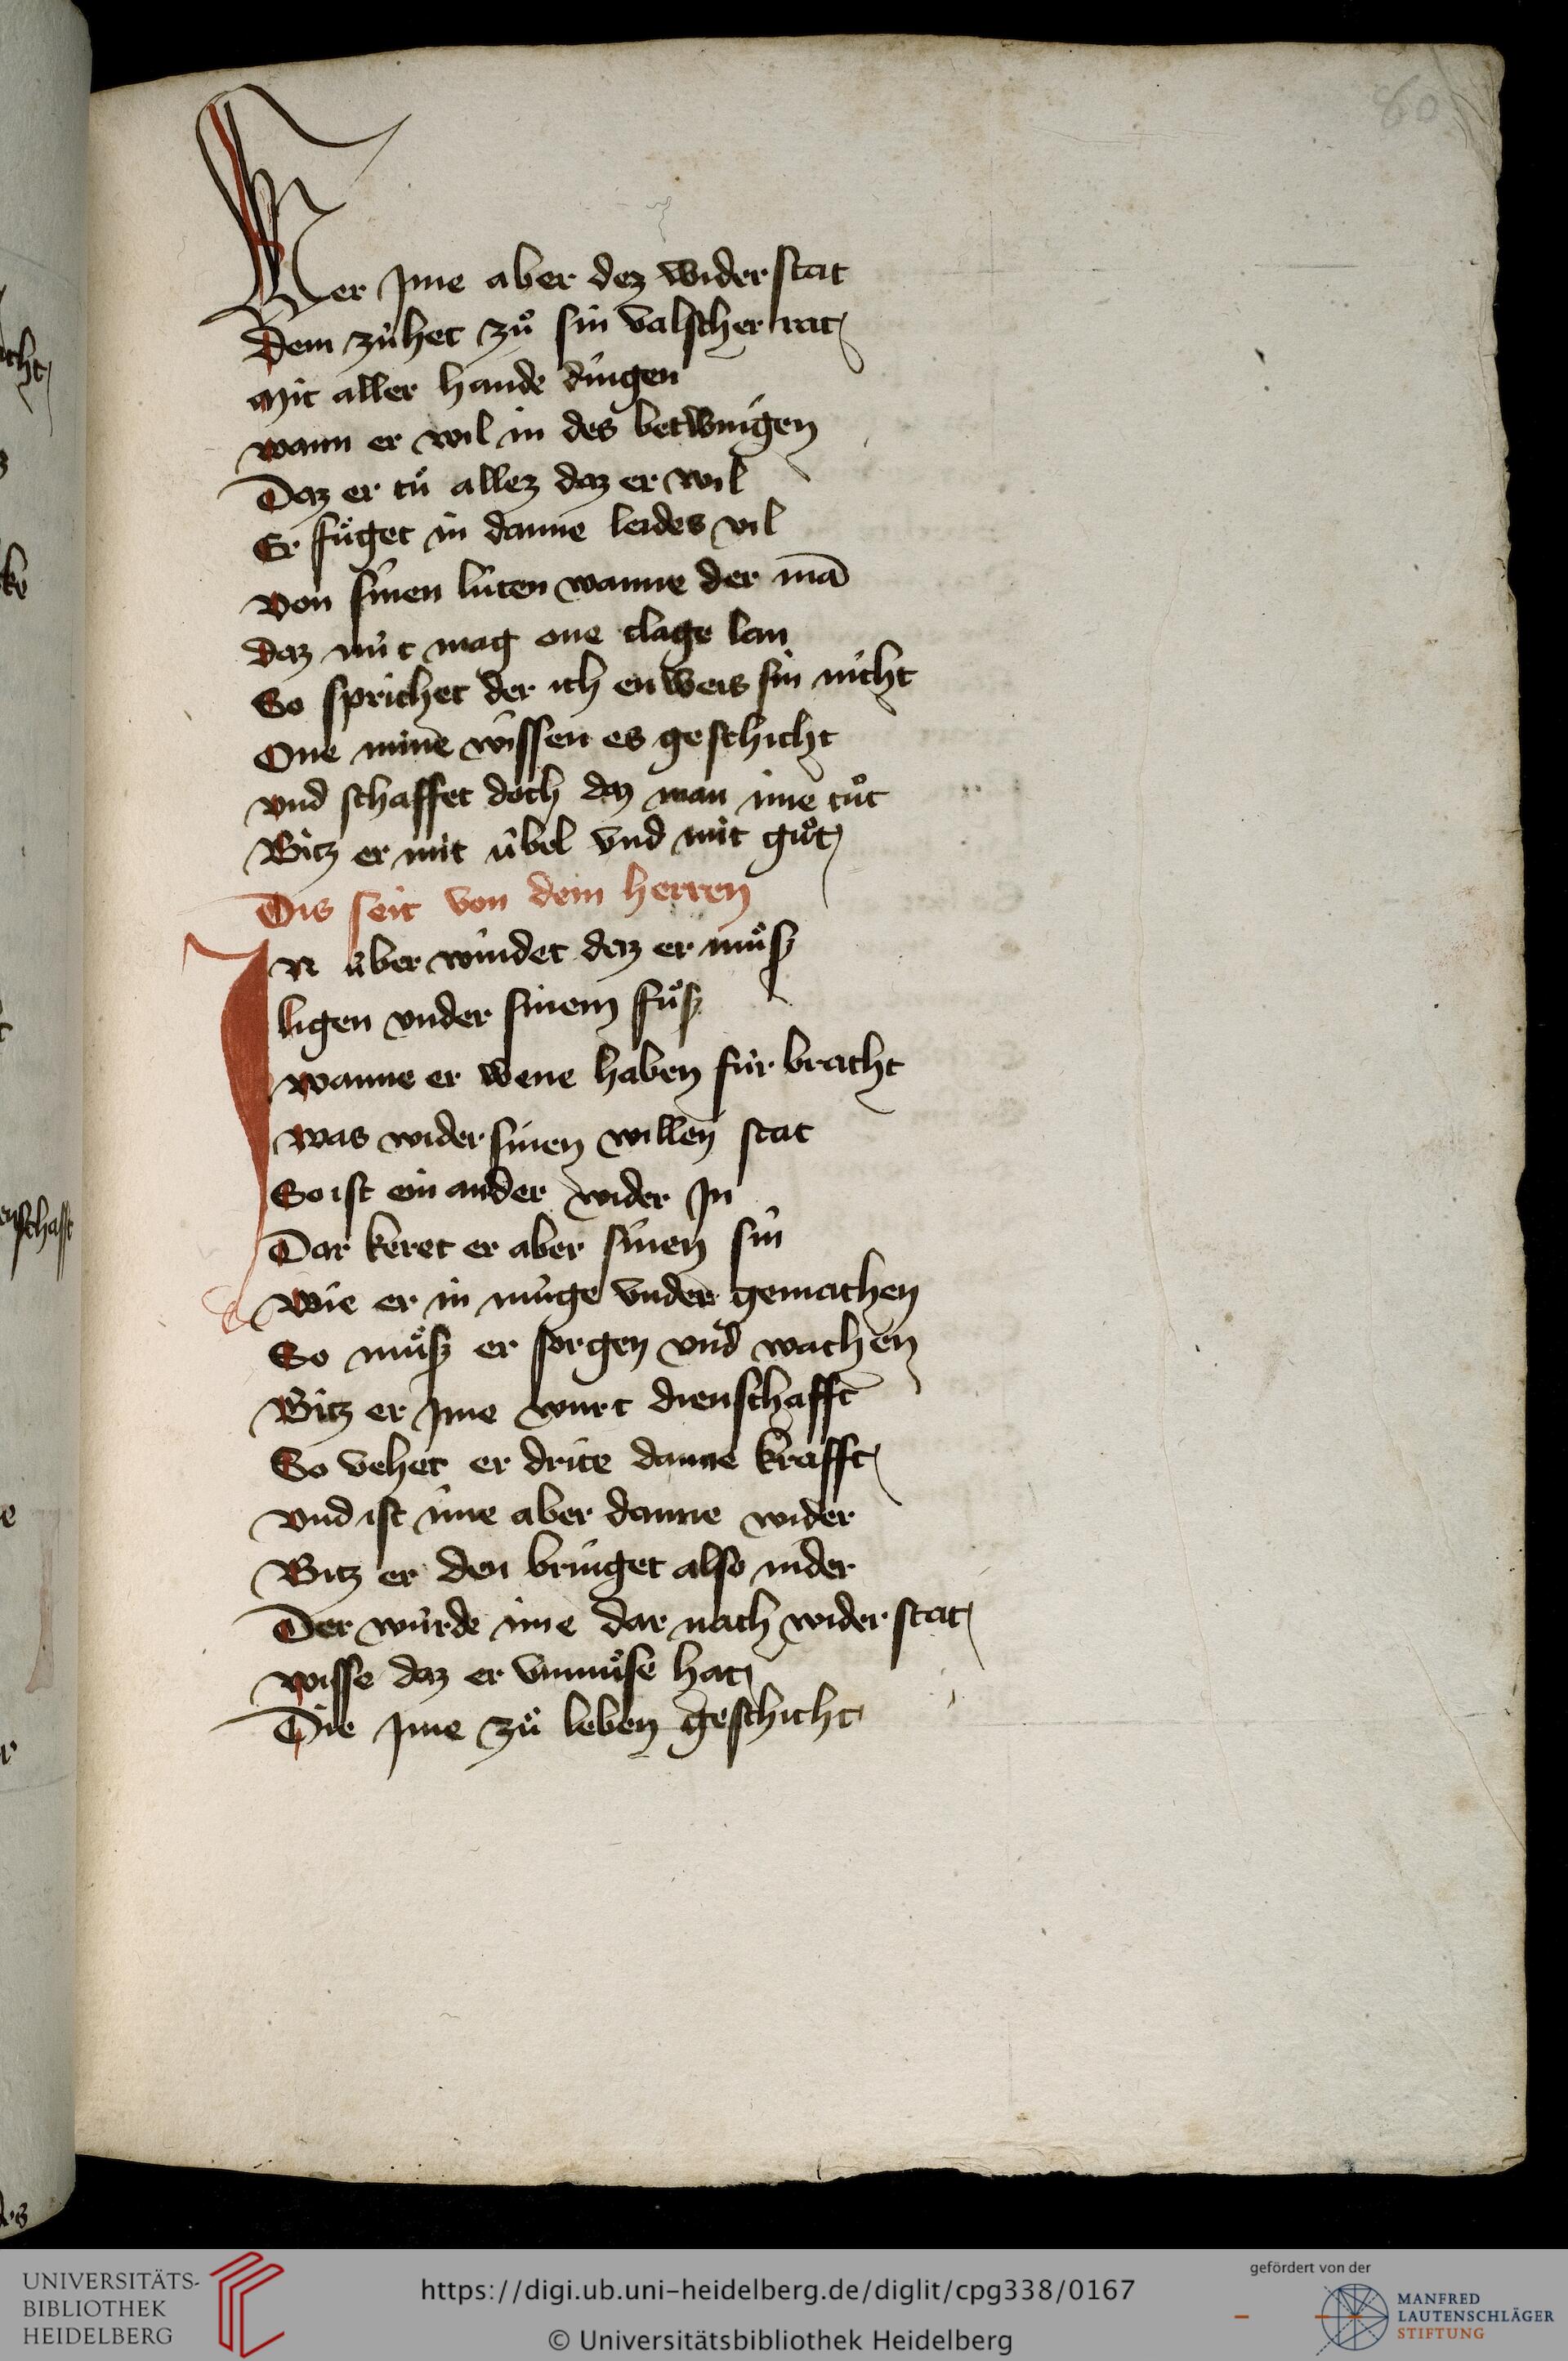 80
Wer jme aber dez wider stat
Dem zühet zuͦ sin valscher rat
Mit aller hande dingen
wann er wil in des betwingen
Daz er tuͤ allez daz er wil
Er fuͤget in danne leides vil
von sinen lüten wanne der mā
daz nüt mag one clage lan
So sprichet der ich enweis sin nicht
One mine wissen es geschicht
vnd schaffet doch daz man ime tuͦt
Bitz er mit übel vnd mit guͦt
Dis seit von dem herren
IN über windet daz er muͦsz
ligen vnder sinem fuͦsz
wanne er wene haben für bracht
was wider sinen willen stat
So ist ein ander wider Jn
Dar keret er aber sinen sin
wie er in müge vnder gemachen
So muͦsz er sorgen vnd wachen
Bitz er jme wurt dienschafft
So vehet er drite danne krafft
vnd ist ime aber danne wider
Bitz er den bringet also nider
Der würde ime dar nach wider stat
wisse daz er vnmuͦse hat
Die jme zuͦ leben geschicht
UNIVERSITÄTS-
BIBLIOTHEK
HEIDELBERG
https://digi.ub.uni-heidelberg.de/diglit/cpg338/0167
© Universitätsbibliothek Heidelberg
gefördert von der
MANFRED
LAUTENSCHLÄGER
STIFTUNG